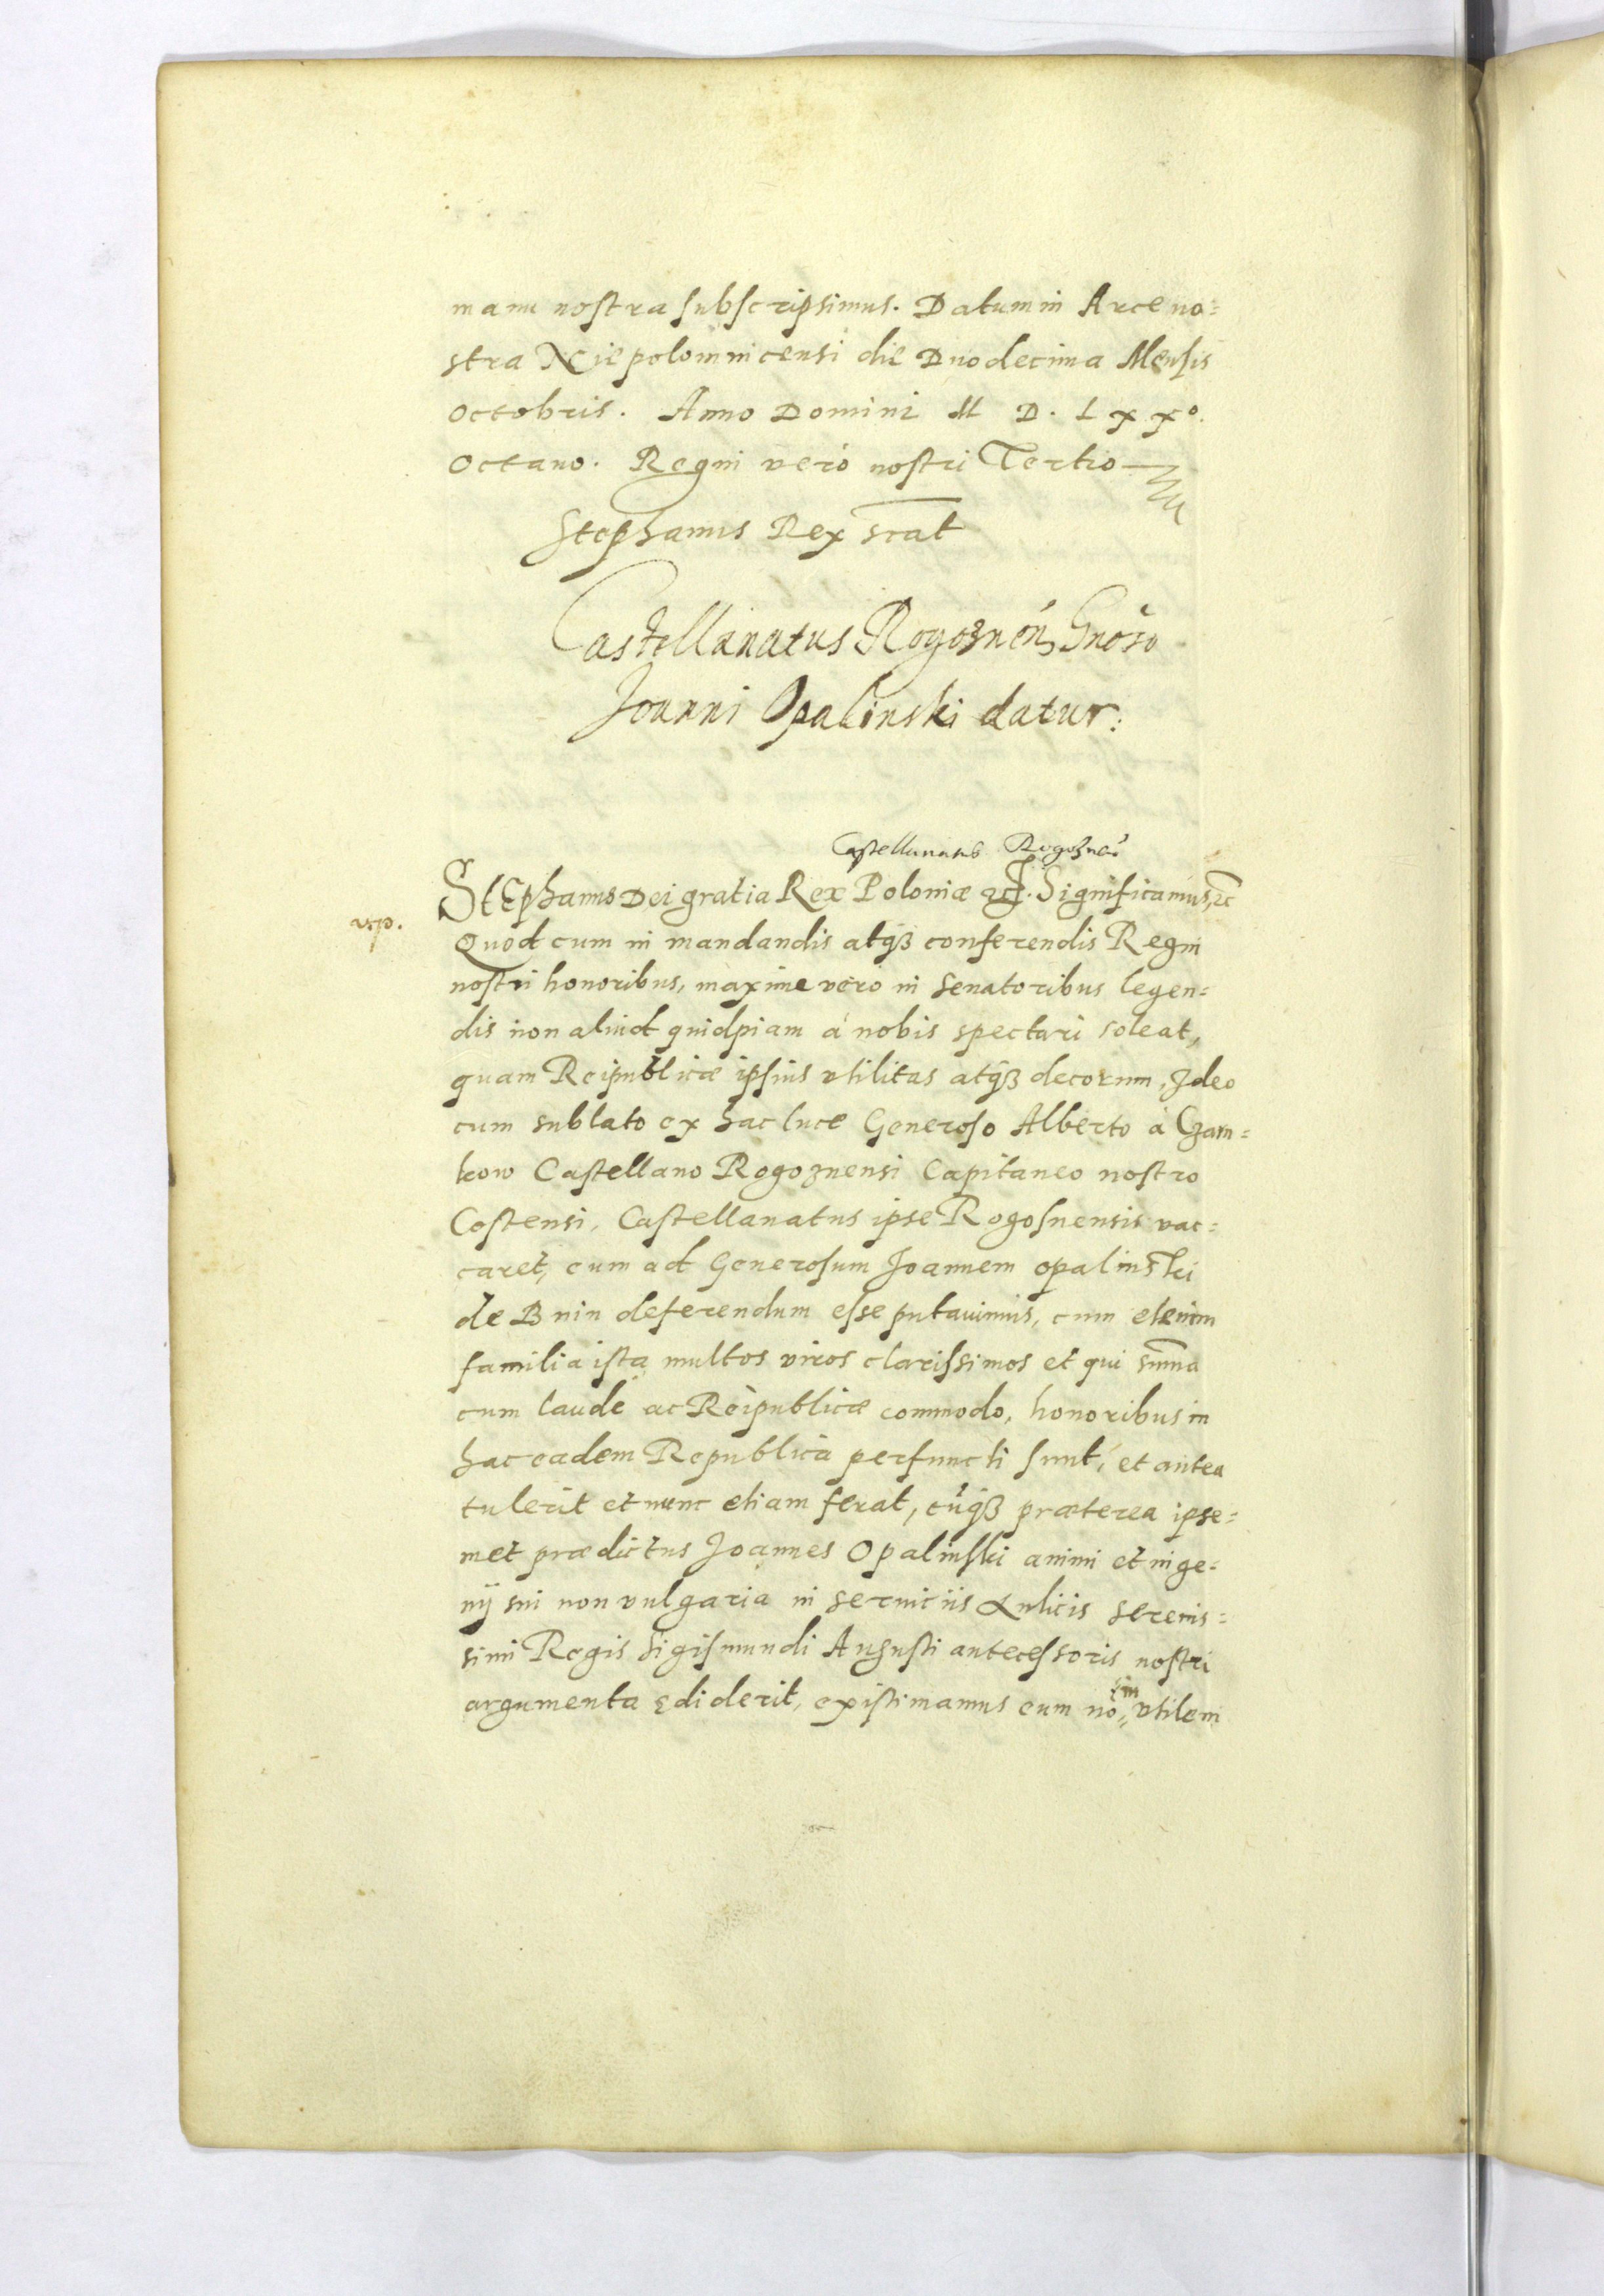 manu nostra subscripsimus. Datum in Arce no=
stra Niepolomnicensi die Duodecima Mensis
Octobris. Anno Domini M D. L x x°.
Octavo. Regni verò nostri Tertio
Stephanus Rex scat
Castellanatus Rogoznen̄ Gnōso
Joanni Opalinski datur:
Castellanatus Rogoznen̄
Stephanus Dei gratia Rex Poloniæ etc. Significamus, etc
Quod cum in mandandis atq₃ conferendis Regni
nostri honoribus, maxime vero in senatoribus legen=
dis non aliud quidpiam à nobis spectari soleat,
quam Reipublicæ ipsius vtilitas atq₃ decorum, Ideo
cum sublato ex hac luce Generoso Alberto à Czarn=
kow Castellano Rogoznensi Capitaneo nostro
Costensi, Castellanatus ipse Rogosnensis vac=
caret, eum ad Generosum Joannem Opalinski
de Bnin deferendum esse putauimus, cum etenim
familia ista multos viros clarissimos et qui sum̄a
cum laude ac Reipublicæ commodo, honoribus in
hac eadem Republica perfuncti sunt, et antea
tulerit et nunc etiam ferat, cūq₃ præterea ipse=
met prædictus Joannes Opalinski animi et inge=
nij sui non vulgaria in seruiciis Aulicis serenis=
simi Regis Sigismundi Augusti antecessoris nostri
argumenta ediderit, existimamus eum nō in vtilem